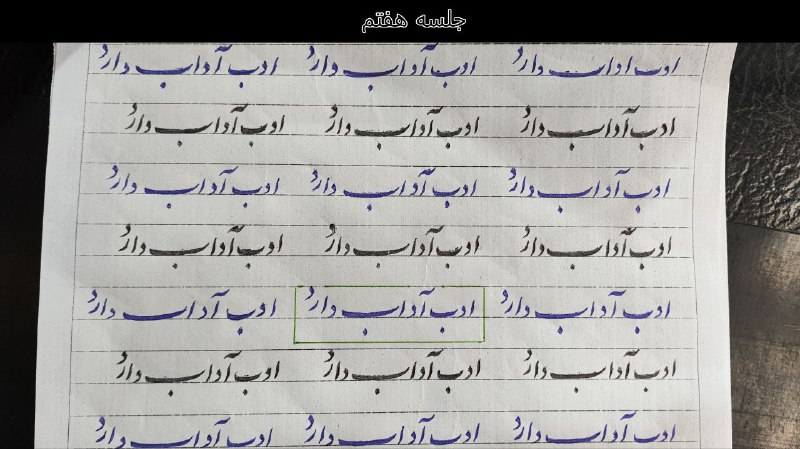 جلسه هفتم
ادب آداب دارد ادب آداب دارد ادب آداب دارد
ادب آداب دارد ادب آداب دارد ادب آداب دارد
ادب آداب دارد ادب آداب دارد ادب آداب دارد
ادب آداب دارد ادب آداب دارد ادب آداب دارد
ادب آداب دارد ادب آداب دارد ادب آداب دارد
ادب آداب دارد ادب آداب دارد ادب آداب دارد
ادب آداب دارد ادب آداب دارد ادب آداب دارد